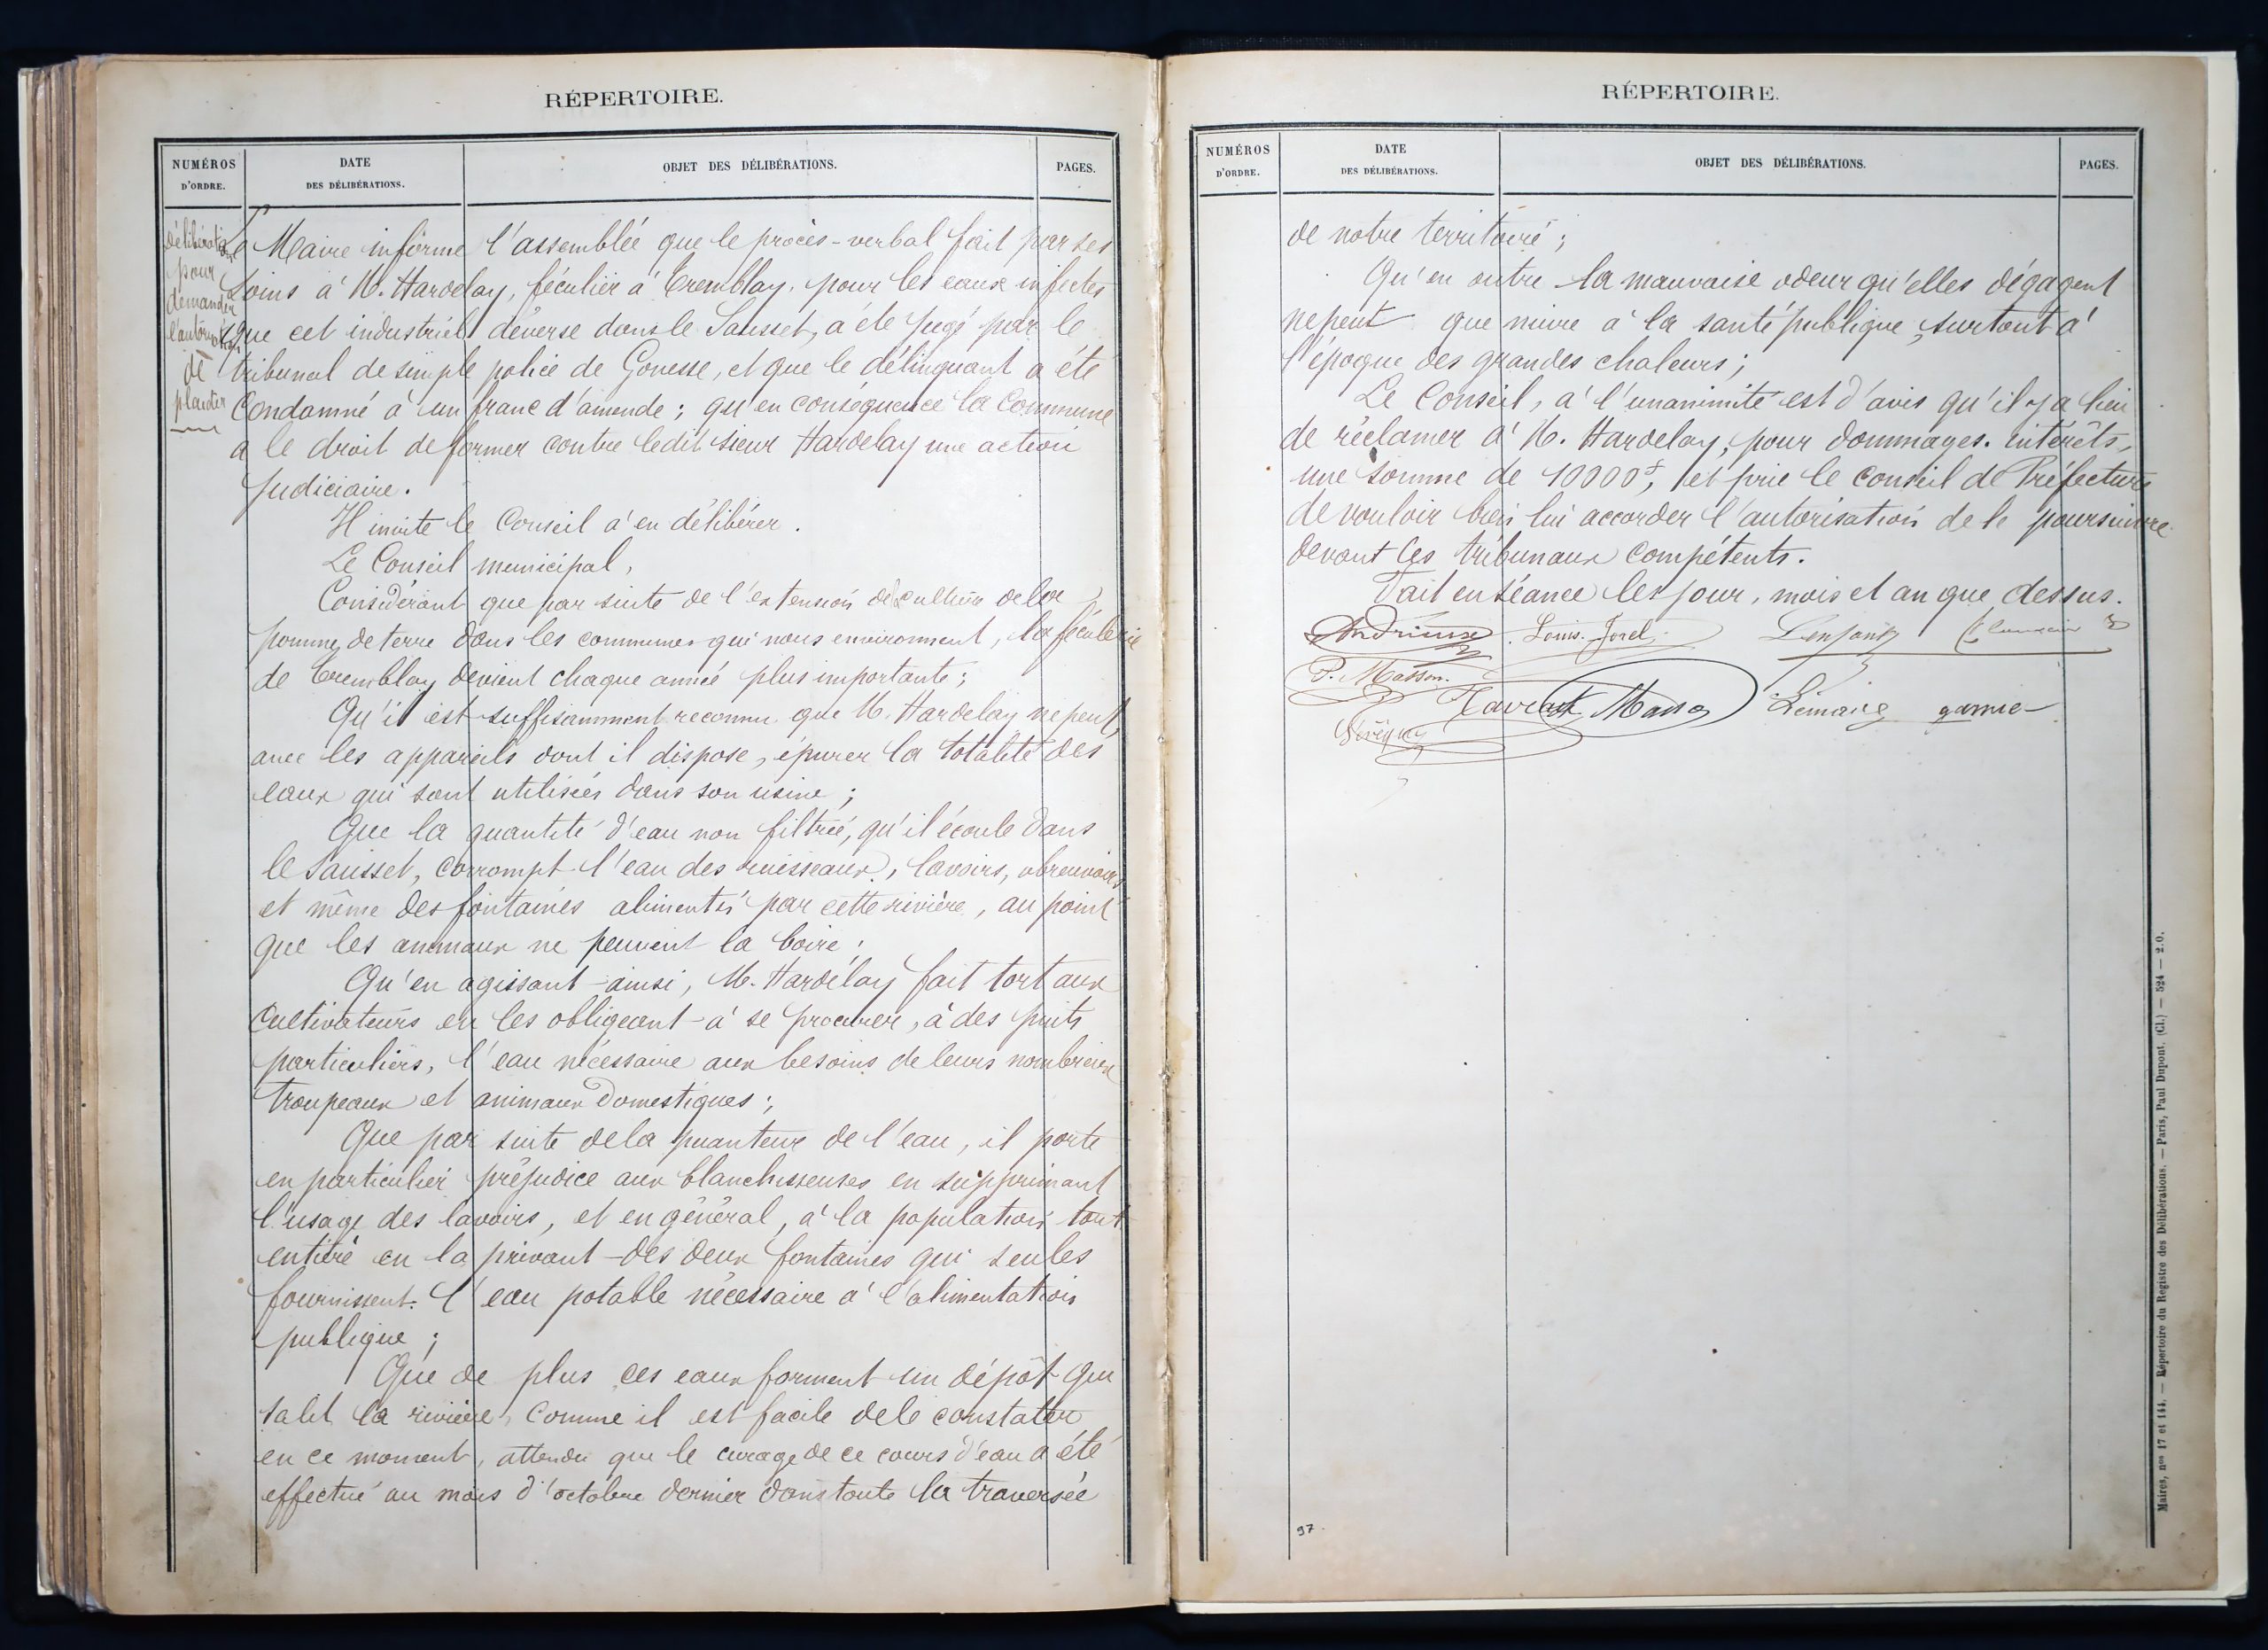 RÉPERTOIRE.
NUMÉROS D'ORDRE.
DATE DES DÉLIBÉRATIONS.
OBJET DES DÉLIBÉRATIONS.
PAGES.
délibération
pour
demander
l'autorisation
de
plaider
Le Maire informe l'assemblée que le procès-verbal fait par ses
soins à M. Hardelay, féculier à Tremblay, pour les eaux infectes
que cet industriel déverse dans le Sausset, a été jugé par le
tribunal de simple police de Gonesse, et que le délinquant a été
Condamné à un franc d'amende; qu'en conséquence la Commune
a le droit de former contre ledit sieur Hardelay une action
judiciaire.
Il invite le Conseil à en délibérer.
Le Conseil municipal,
Considérant que par suite de l'extension de culture de la
pomme de terre dans les communes qui nous environnent, la féculerie
de Tremblay devient chaque année plus importante;
Qu'il est suffisamment reconnu que M. Hardelay ne peut,
avec les appareils dont il dispose, épurer la totalité des
eaux qui sont utilisées dans son usine;
Que la quantité d'eau non filtrée, qu'il écoule dans
le Sausset, corrompt l'eau des ruisseaux, lavoirs, abreuvoirs
et même des fontaines alimentés par cette rivière, au point
que les animaux ne peuvent la boire;
Qu'en agissant ainsi, M. Hardelay fait tort aux
Cultivateurs en les obligeant à se procurer, à des puits
particuliers, l'eau nécessaire aux besoins de leurs nombreux
troupeaux et animaux domestiques;
Que par suite de la puanteur de l'eau, il porte
en particulier préjudice aux blanchisseuses en supprimant
l'usage des lavoirs, et en général, à la population tout
entière en la privant des deux fontaines qui seules
fournissent l'eau potable nécessaire à l'alimentation
publique;
Que de plus ces eaux forment un dépôt qui
salit la rivière, comme il est facile de le constater
en ce moment, attendu que le curage de ce cours d'eau a été
effectué au mois d'octobre dernier dans toute la traversée
RÉPERTOIRE.
NUMÉROS D'ORDRE.
DATE DES DÉLIBÉRATIONS.
OBJET DES DÉLIBÉRATIONS.
PAGES.
de notre territoire;
Qu'en outre la mauvaise odeur qu'elles dégagent
ne peut que nuire à la santé publique, surtout à
l'époque des grandes chaleurs;
Le Conseil, à l'unanimité est d'avis qu'il y a lieu
de réclamer à M. Hardelay, pour dommages-intérêts,
une somme de 10000f, et prie le conseil de Préfecture
de vouloir bien lui accorder l'autorisation de le poursuivre
devant les tribunaux compétents.
Fait en séance les jour, mois et an que dessus.
Andrieux Louis Jorel
P. Masson.
Masson Lemaire garnie
97
Maires, nos 17 et 144. — Répertoire du Registre des Délibérations. — Paris, Paul Dupont. (Cl.) — 524 — 2.0.